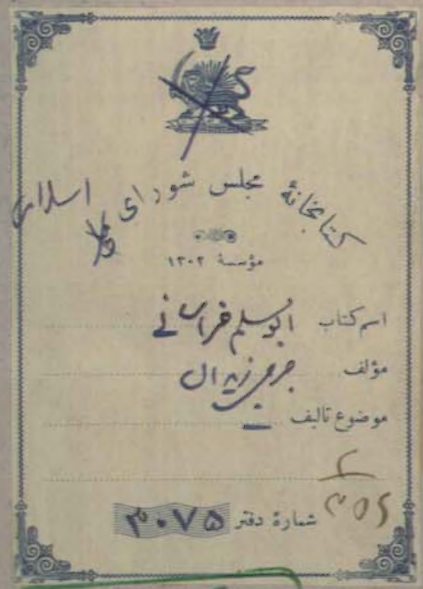 کتابخانهٔ مجلس شورای ملی اسلامی
مؤسسهٔ ۱۳۰۲
اسم کتاب ابومسلم خراسانی
مؤلف جرجی زیدان
موضوع تالیف
شمارهٔ دفتر ۳۰۷۵